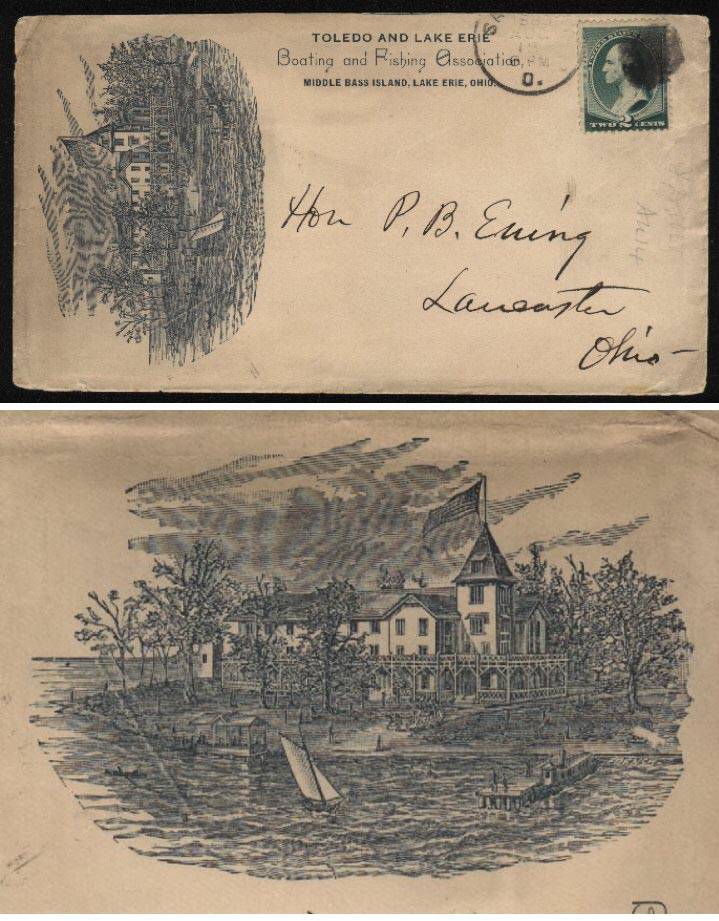 TOLEDO AND LAKE ERIE
Boating and Fishing Association,
MIDDLE BASS ISLAND, LAKE ERIE, OHIO.
PM
O.
UNITED STATES
TWO 2 CENTS
Hon P. B. Ewing
Lancaster
Ohio